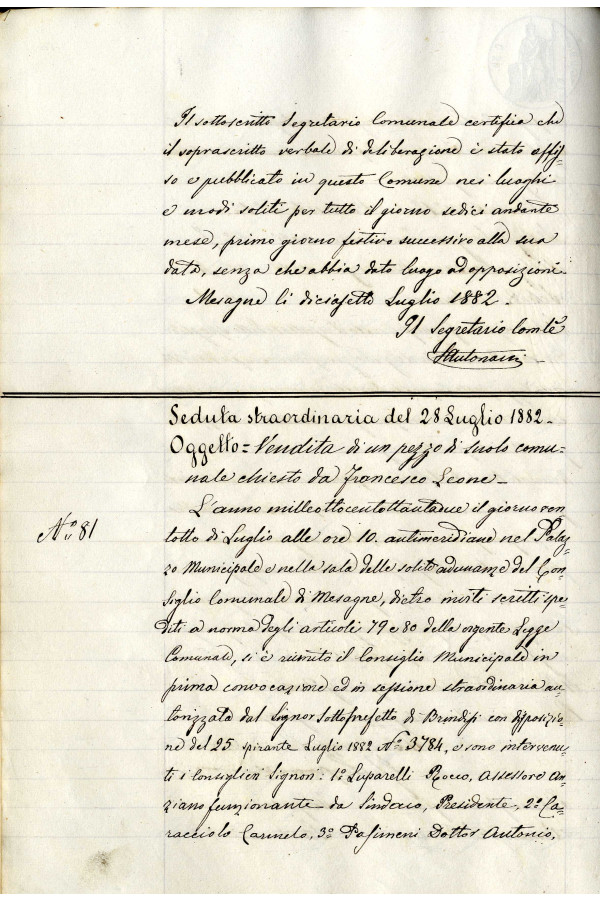 Il sottoscritto Segretario Comunale certifica che
il soprascritto verbale di deliberazione è stato affis-
so e pubblicato in questo Comune nei luoghi
e modi soliti per tutto il giorno sedici andante
mese, primo giorno festivo successivo alla sua
data, senza che abbia dato luogo ad opposizioni.
Mesagne li diciasette Luglio 1882.
Il Segretario Comle
Seduta straordinaria del 28 Luglio 1882.
Oggetto = Vendita di un pezzo di suolo comu-
nale chiesto da Francesco Leone.
L'anno milleottocentottantadue il giorno ven
totto di Luglio alle ore 10. antimeridiane nel Palaz-
No. 81
zo Municipale e nella sala delle solite adunanze del Con-
siglio Comunale di Mesagne, dietro inviti scritti spe-
diti a norma degli articoli 79 e 80 della vigente Legge
Comunale, si è riunito il Consiglio Municipale in
prima convocazione ed in sessione straordinaria au-
torizzata dal Signor Sottoprefetto di Brindisi con disposizio-
ne del 25 spirante Luglio 1882 No. 3784, e sono intervenu-
ti i Consiglieri Signori: 1o Luparelli Rocco, Assessore An-
ziano funzionante da Sindaco, Presidente, 2o Ca-
racciolo Carmelo, 3o Pasimeni Dottor Antonio,